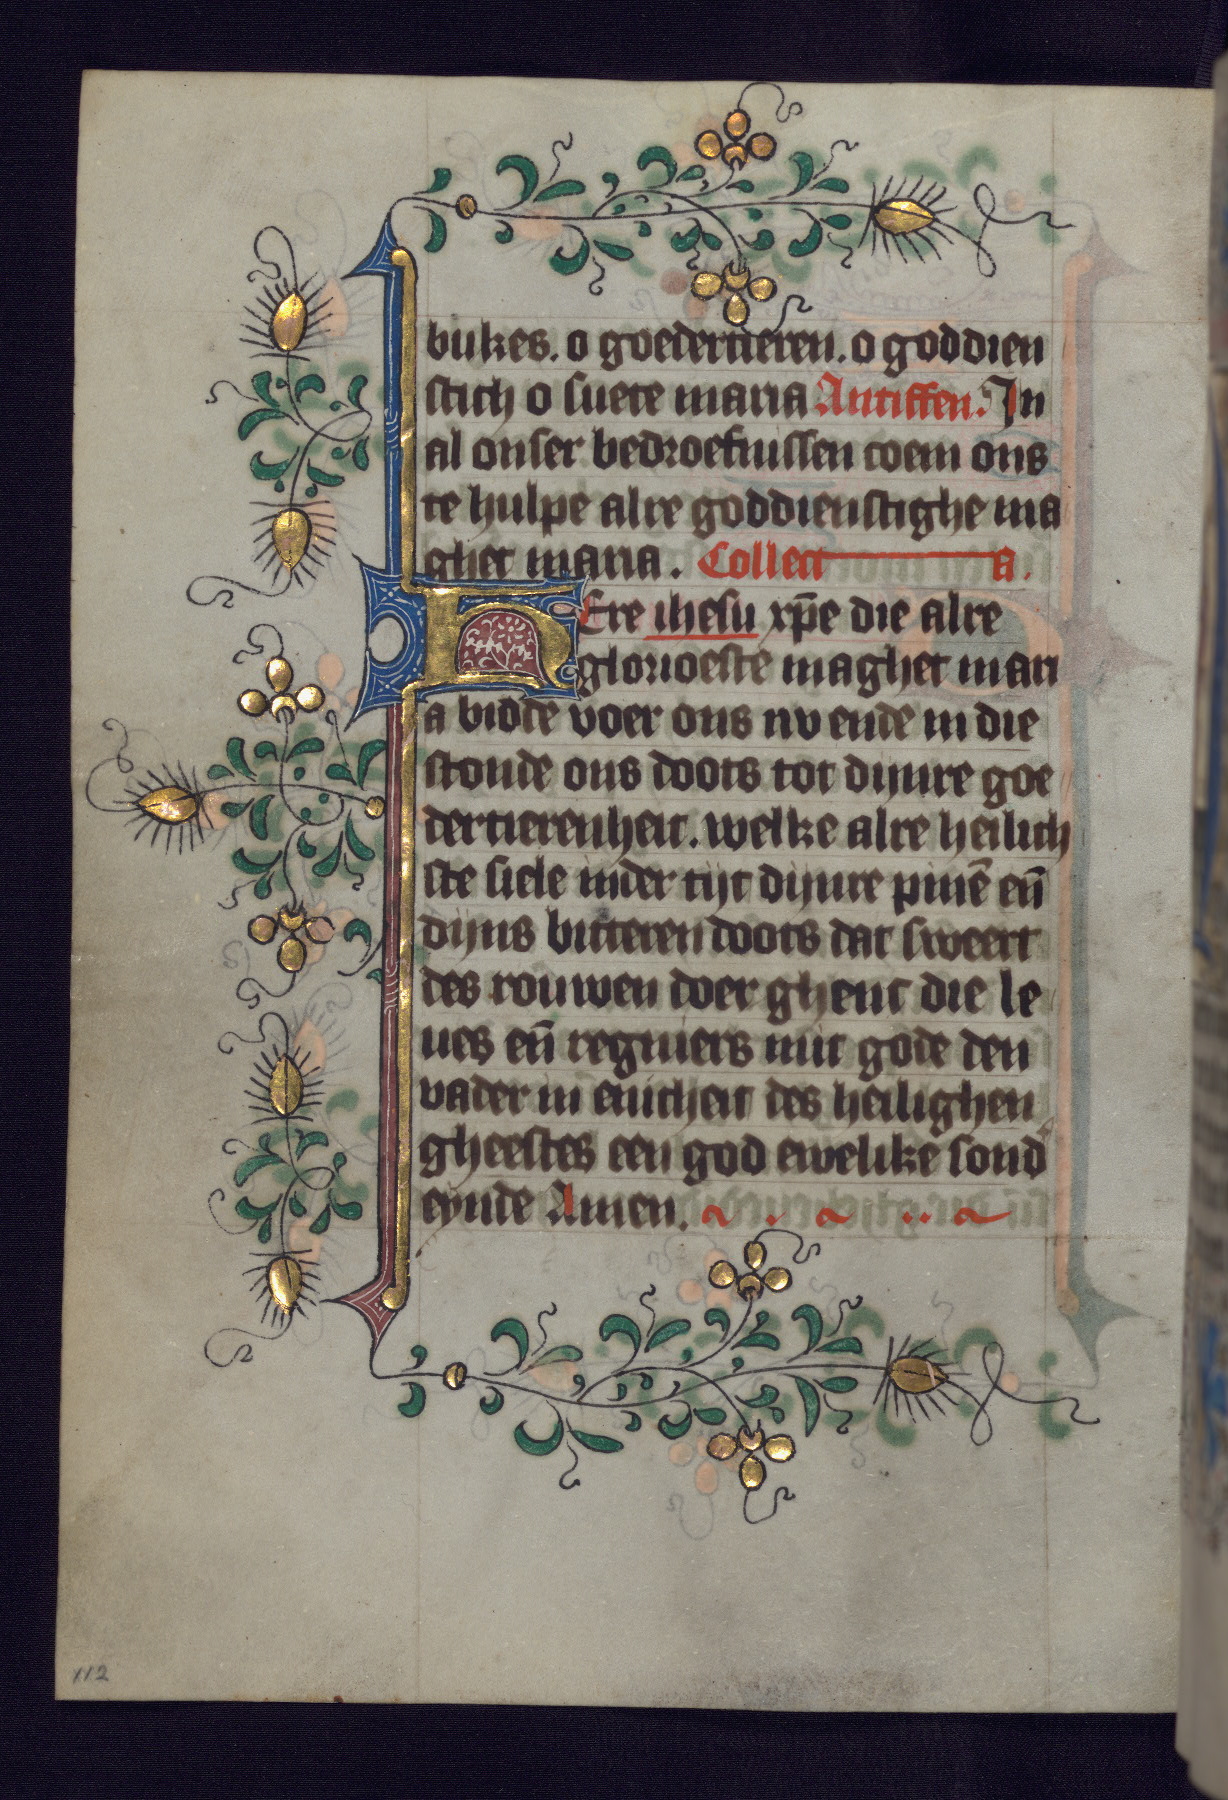 bukes. o goedertieren. o goddien
stich o suete maria Antiffen. In
al onser bedroefnissen coem ons
te hulpe alre goddienstighe ma
ghet maria. Collect a.
HEre ihesu xp̄e die alre
glorioeste maghet mari
a bidde voer ons nv ende in die
stonde ons doots tot dijnre goe
dertierenheit. welke alre heilich
ste siele inder tijt dijnre pinē en̄
dijns bitteren doots dat sweert
des rouwen doer ghenc die le
ues en̄ regniers mit gode den
vader in enicheit des heilighen
gheestes een god ewelike sond
eynde Amen.
112